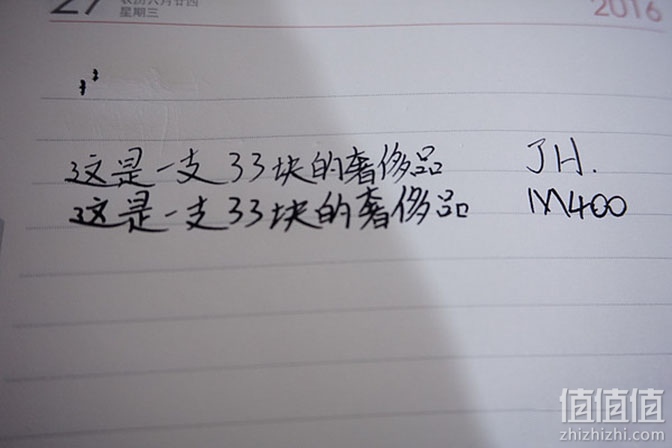 27
农历六月廿四
星期三
2016
这是一支33块的奢侈品 JH.
这是一支33块的奢侈品 M400
值值值
zhizhizhi.com